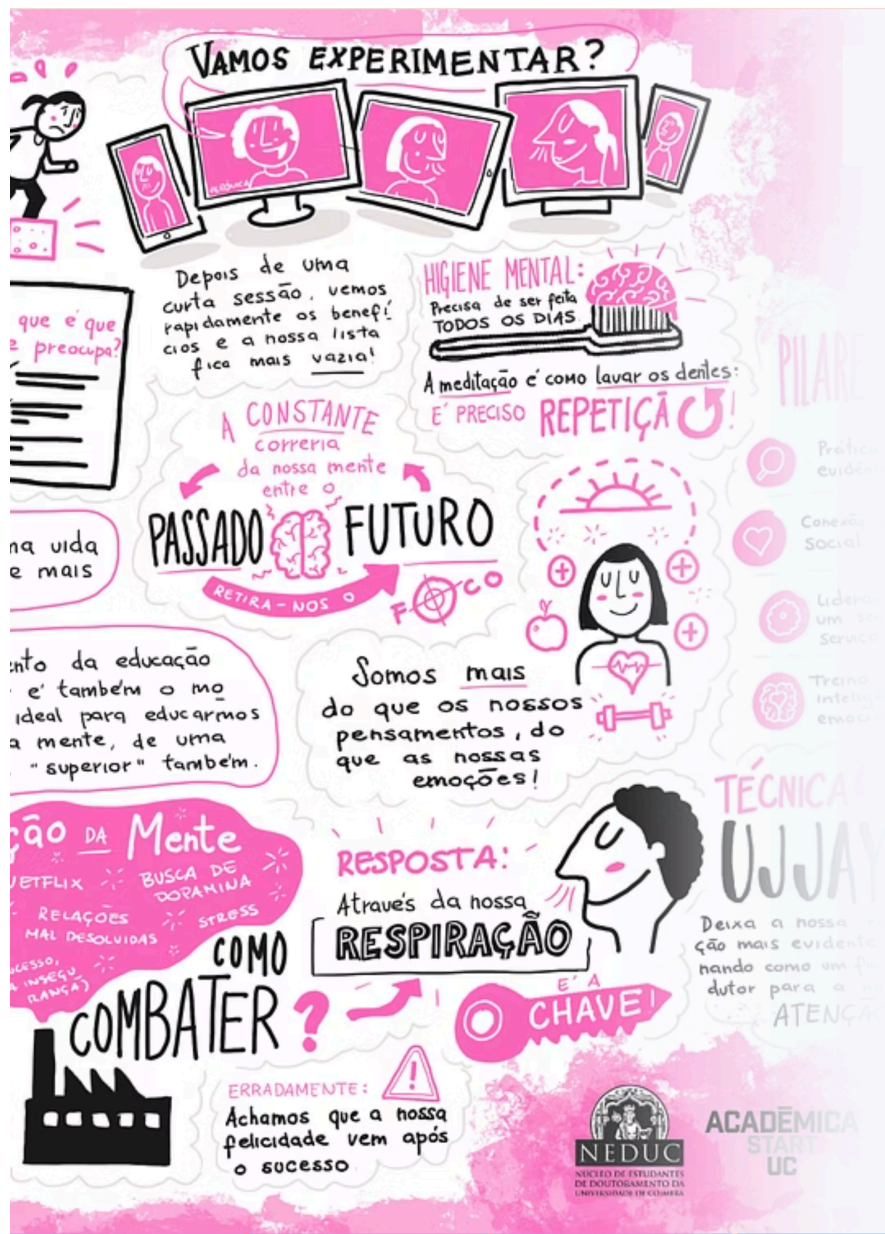 VAMOS EXPERIMENTAR?
VERÓNICA
Depois de uma
curta sessão, vemos
rapidamente os benefí
cios e a nossa lista
fica mais vazia!
HIGIENE MENTAL:
Precisa de ser feita
TODOS OS DIAS.
A meditação é como lavar os dentes:
É PRECISO REPETIÇÃO!
que é que
preocupa?
A CONSTANTE
correria
da nossa mente
entre o
PASSADO FUTURO
RETIRA-NOS O
FOCO
PILARE
Prática
Conexão
Social
um
Treino
na vida
e mais
da educação
e' também o mo
ideal para educarmos
a mente, de uma
"superior" também.
Somos mais
do que os nossos
pensamentos, do
que as nossas
emoções!
ção DA Mente
NETFLIX
BUSCA DE
DOPAMINA
RELAÇÕES
MAL DESOLVIDAS
STRESS
COMO
COMBATER?
RESPOSTA:
Através da nossa
RESPIRAÇÃO
É A
CHAVE!
TÉCNICA
UJJAY
Deixa a nossa
ção mais evidente
nando como um
dutor para a
ATENÇÃ
ERRADAMENTE:
Achamos que a nossa
felicidade vem após
o sucesso
NEDUC
NÚCLEO DE ESTUDANTES
DE DOUTORAMENTO DA
UNIVERSIDADE DE COIMBRA
ACADĒMICA
START
UC